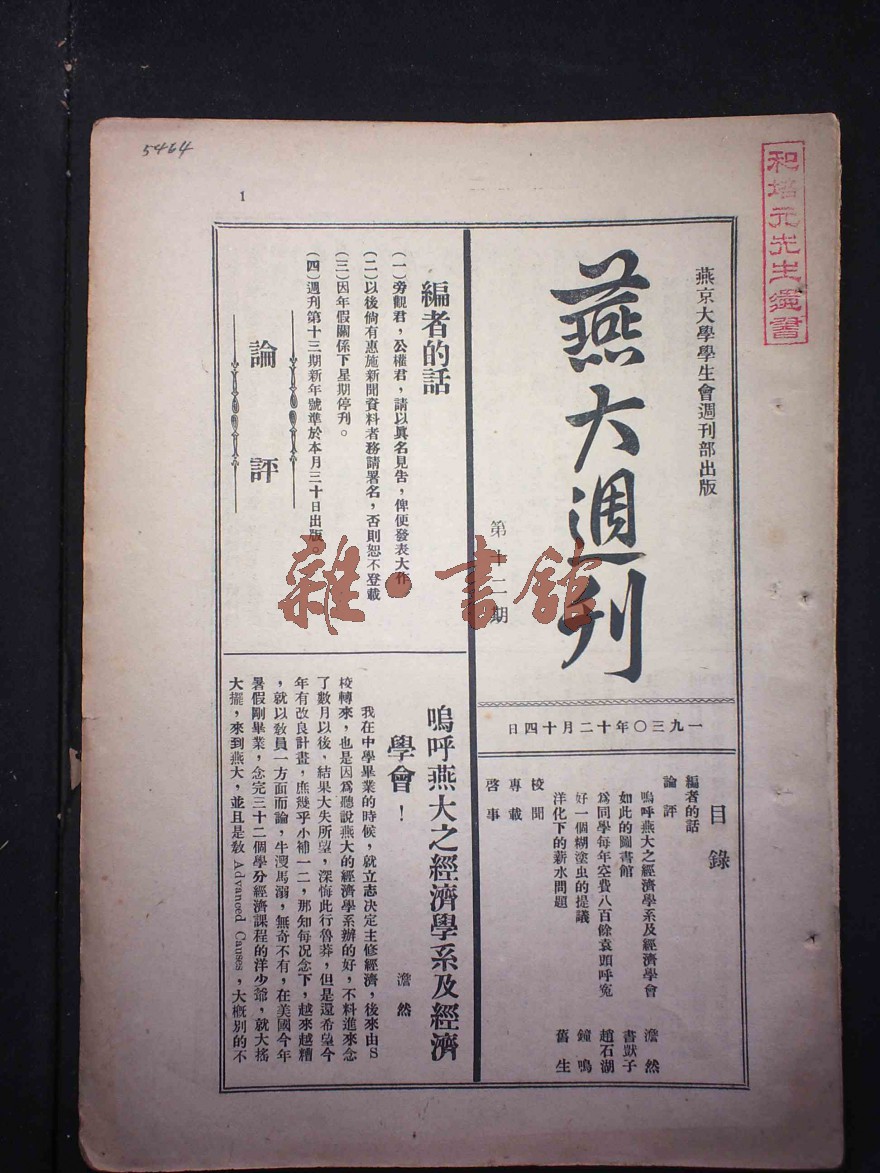 5464
和培元先生遺書
1
燕京大學學生會週刊部出版
燕大週刊
第十二期
一九三〇年十二月十四日
目錄
編者的話
論評
嗚呼燕大之經濟學系及經濟學會 澹然
如此的圖書館 書獃子
爲同學每年空費八百餘袁頭呼寃 趙石湖
好一個糊塗虫的提議 鐘鳴
洋化下的薪水問題 舊生
校聞
專載
啓事
編者的話
(一)旁觀君，公權君，請以眞名見告，俾便發表大作
(二)以後倘有惠施新聞資料者務請署名，否則恕不登載
(三)因年假關係下星期停刊。
(四)週刊第十三期新年號準於本月三十日出版。
論評
嗚呼燕大之經濟學系及經濟
學會！
澹然
我在中學畢業的時候，就立志決定主修經濟，後來由S
校轉來，也是因爲聽說燕大的經濟學系辦的好，不料進來念
了數月以後，結果大失所望，深悔此行魯莽，但是還希望今
年有改良計畫，庶幾乎小補一二，那知每況念下，越來越糟
，就以教員一方面而論，牛溲馬溺，無奇不有，在美國今年
暑假剛畢業，念完三十二個學分經濟課程的洋少爺，就大搖
大擺，來到燕大，並且是教 Advanced Causes，大概別的不
雜·書館